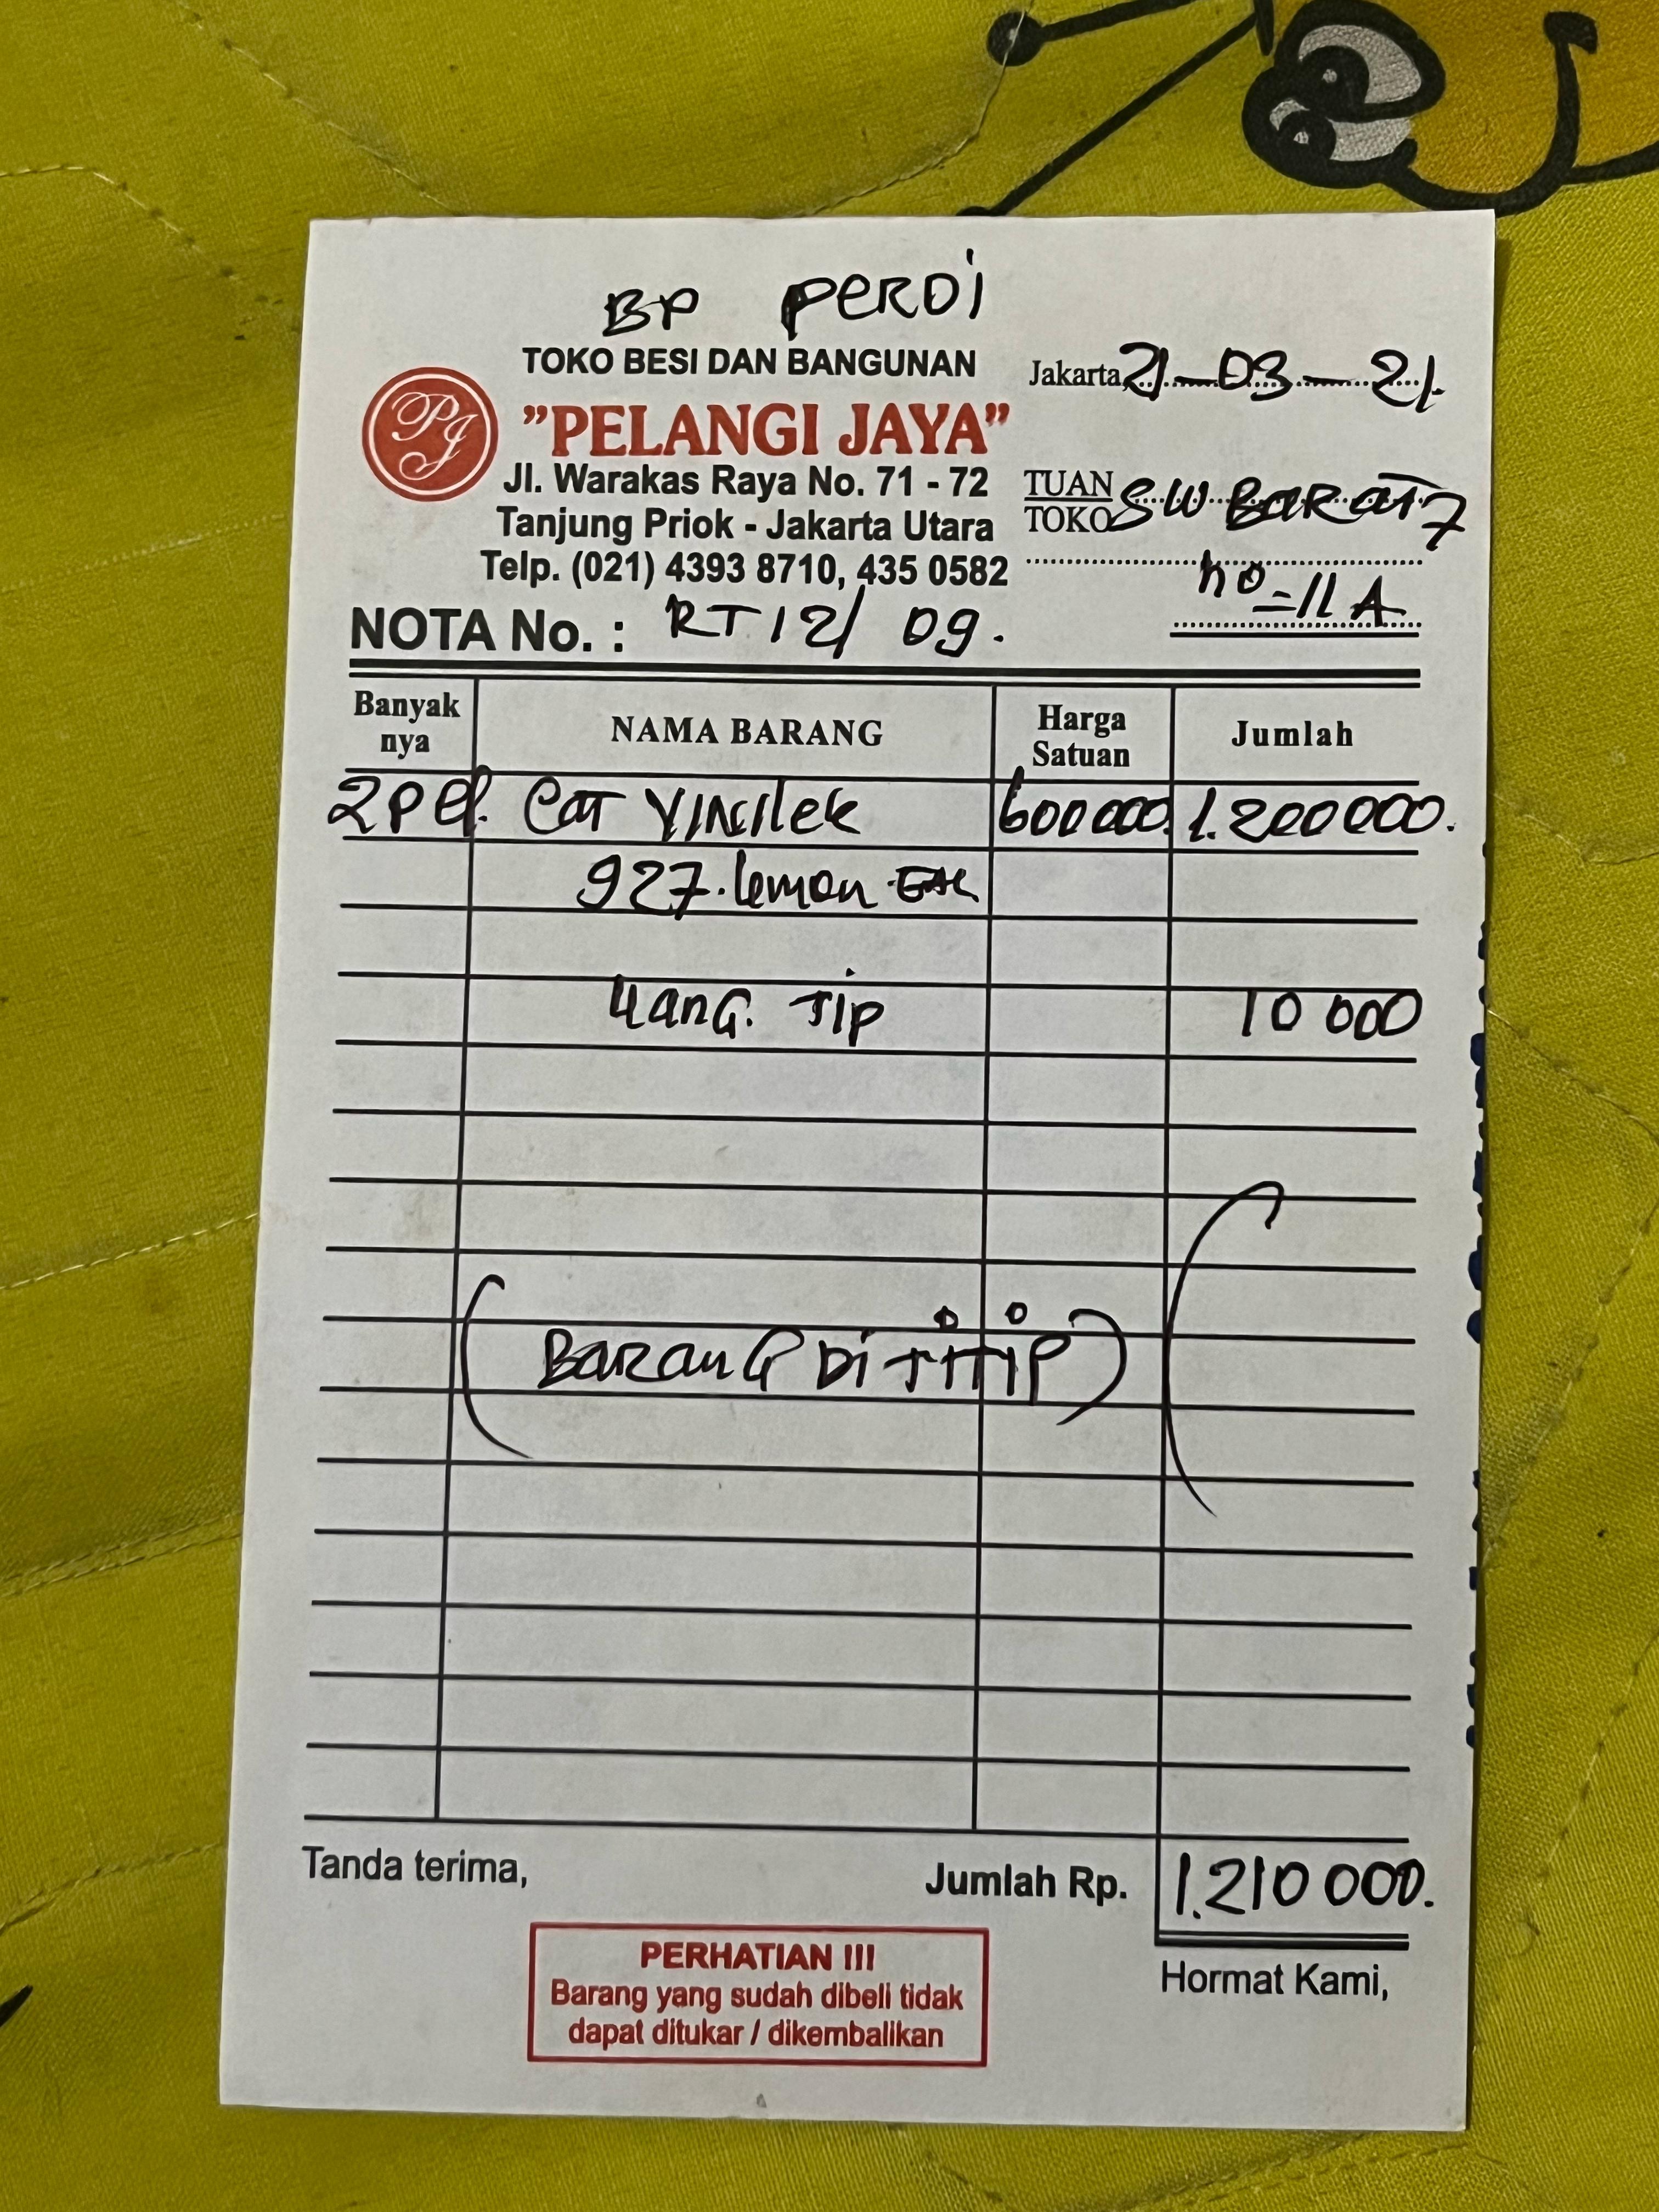 BP PERDI
TOKO BESI DAN BANGUNAN
Jakarta, 21-03-21.
PJ
"PELANGI JAYA"
Jl. Warakas Raya No. 71 - 72
Tanjung Priok - Jakarta Utara
Telp. (021) 4393 8710, 435 0582
TUAN
TOKO
SW BARAT 7
no = 11 A
NOTA No. : RT 12/ 09.
Banyak nya NAMA BARANG Harga Satuan Jumlah
2 Pel. Cat 600 000. 1.200 000.
927. lemon
Uang. Tip 10 000
(BARANG Di TiTiP)
Tanda terima,
Jumlah Rp. 1.210 000.
Hormat Kami,
PERHATIAN !!!
Barang yang sudah dibeli tidak
dapat ditukar / dikembalikan